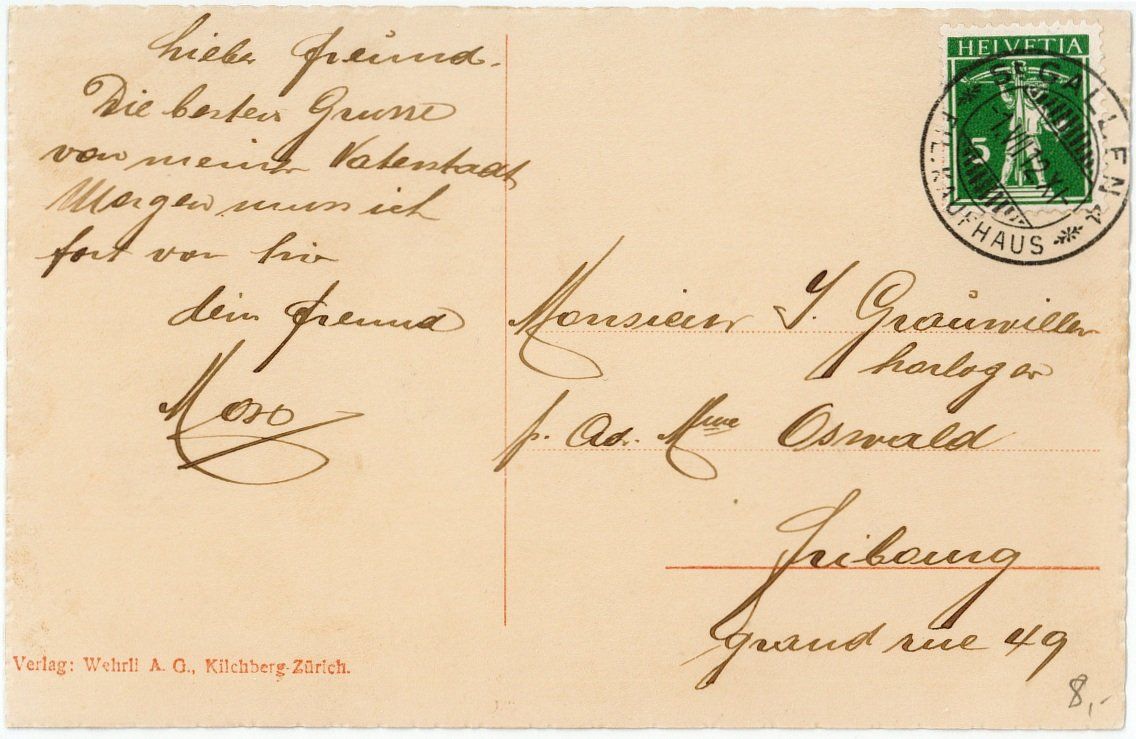 Lieber Freund.
Die besten Grusse
von meiner Vaterstadt
Morgen muss ich
fort von hir
dein Freund
Moso
HELVETIA
5
St GALLEN 4
1.VII.12.XI
FIL. KAUFHAUS
Monsieur J. Graüwiller
horloger
p. Ad. Mme Oswald
Fribourg
Grand rue 49
Verlag: Wehrli A. G., Kilchberg-Zürich.
8,-